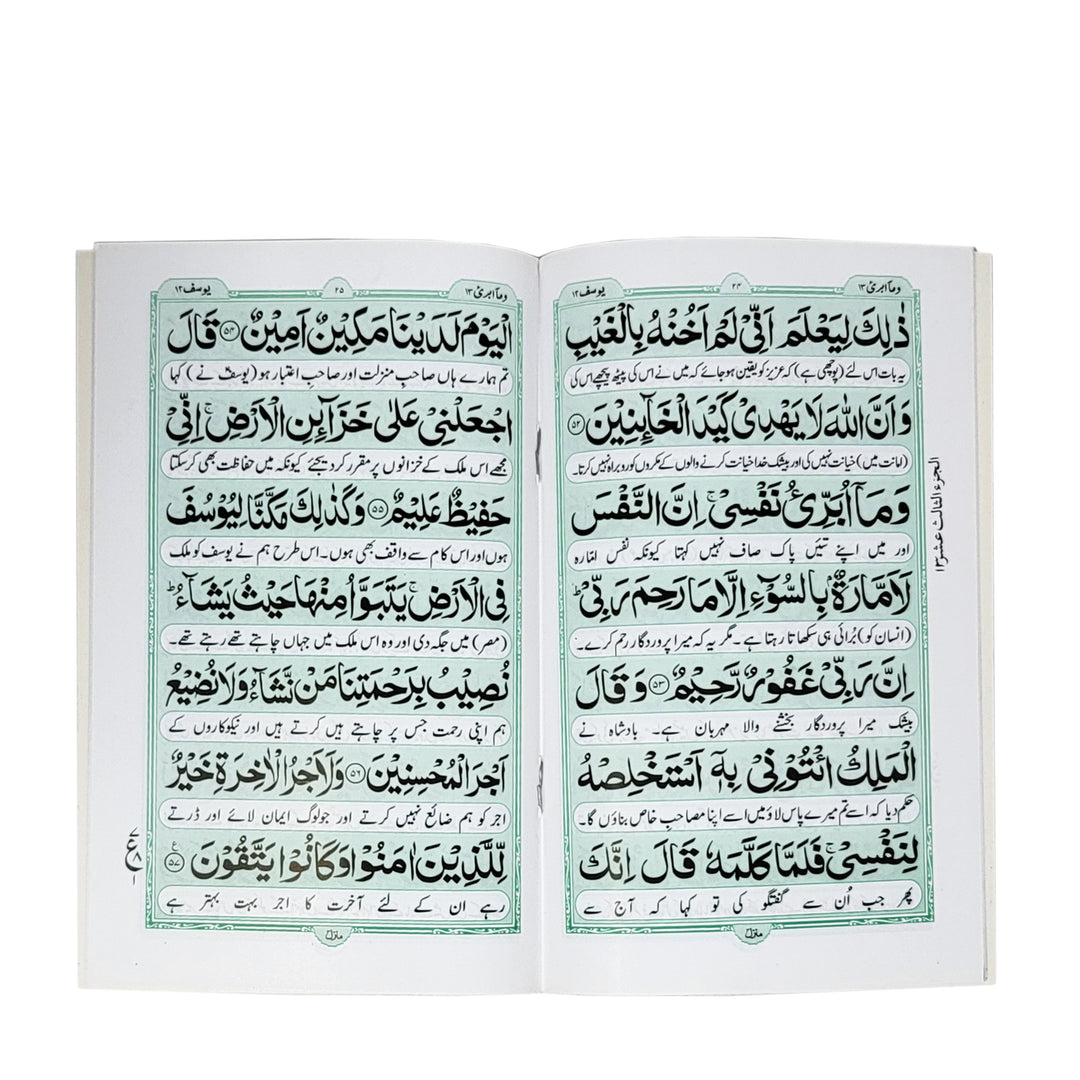 وما ابرئ ١٣
٢٤
يوسف ١٢
ذٰلِكَ لِيَعْلَمَ اَنِّىْ لَمْ اَخُنْهُ بِالْغَيْبِ
یہ بات اس لئے (پوچھی ہے) کہ عزیز کو یقین ہو جائے کہ میں نے اس کی پیٹھ پیچھے اس کی
وَاَنَّ اللّٰهَ لَا يَهْدِىْ كَيْدَ الْخَآئِنِيْنَ ﴿٥٢﴾
(امانت میں) خیانت نہیں کی اور بیشک خدا خیانت کرنے والوں کے مکروں کو رو براہ نہیں کرتا۔
وَمَآ اُبَرِّئُ نَفْسِىْ ۚ اِنَّ النَّفْسَ
اور میں اپنے تئیں پاک صاف نہیں کہتا کیونکہ نفس امّارہ
لَاَمَّارَةٌۢ بِالسُّوْٓءِ اِلَّا مَا رَحِمَ رَبِّىْ ؕ
(انسان کو) بُرائی ہی سکھاتا رہتا ہے۔ مگر یہ کہ میرا پروردگار رحم کرے۔
اِنَّ رَبِّىْ غَفُوْرٌ رَّحِيْمٌ ﴿٥٣﴾ وَقَالَ
بیشک میرا پروردگار بخشنے والا مہربان ہے۔ بادشاہ نے
الْمَلِكُ ائْتُوْنِىْ بِهٖٓ اَسْتَخْلِصْهُ
حکم دیا کہ اسے تم میرے پاس لاؤ میں اسے اپنا مصاحب خاص بناؤں گا۔
لِنَفْسِىْ ۚ فَلَمَّا كَلَّمَهٗ قَالَ اِنَّكَ
پھر جب اُن سے گفتگو کی تو کہا کہ آج سے
منزل
الجزء الثالث عشر ١٣
وما ابرئ ١٣
٢٥
يوسف ١٢
الْيَوْمَ لَدَيْنَا مَكِيْنٌ اَمِيْنٌ ﴿٥٤﴾ قَالَ
تم ہمارے ہاں صاحب منزلت اور صاحب اعتبار ہو (یوسفؑ نے) کہا
اجْعَلْنِىْ عَلٰى خَزَآئِنِ الْاَرْضِ ۚ اِنِّىْ
مجھے اس ملک کے خزانوں پر مقرر کر دیجئے کیونکہ میں حفاظت بھی کر سکتا
حَفِيْظٌ عَلِيْمٌ ﴿٥٥﴾ وَكَذٰلِكَ مَكَّنَّا لِيُوْسُفَ
ہوں اور اس کام سے واقف بھی ہوں۔ اس طرح ہم نے یوسف کو ملک
فِى الْاَرْضِ ۚ يَتَبَوَّاُ مِنْهَا حَيْثُ يَشَآءُ ؕ
(مصر) میں جگہ دی اور وہ اس ملک میں جہاں چاہتے تھے رہتے تھے۔
نُصِيْبُ بِرَحْمَتِنَا مَنْ نَّشَآءُ وَلَا نُضِيْعُ
ہم اپنی رحمت جس پر چاہتے ہیں کرتے ہیں اور نیکوکاروں کے
اَجْرَ الْمُحْسِنِيْنَ ﴿٥٦﴾ وَلَاَجْرُ الْاٰخِرَةِ خَيْرٌ
اجر کو ہم ضائع نہیں کرتے اور جو لوگ ایمان لائے اور ڈرتے
لِّلَّذِيْنَ اٰمَنُوْا وَكَانُوْا يَتَّقُوْنَ ﴿٥٧﴾ ع
رہے ان کے لئے آخرت کا اجر بہت بہتر ہے
منزل
ع ٨ ١